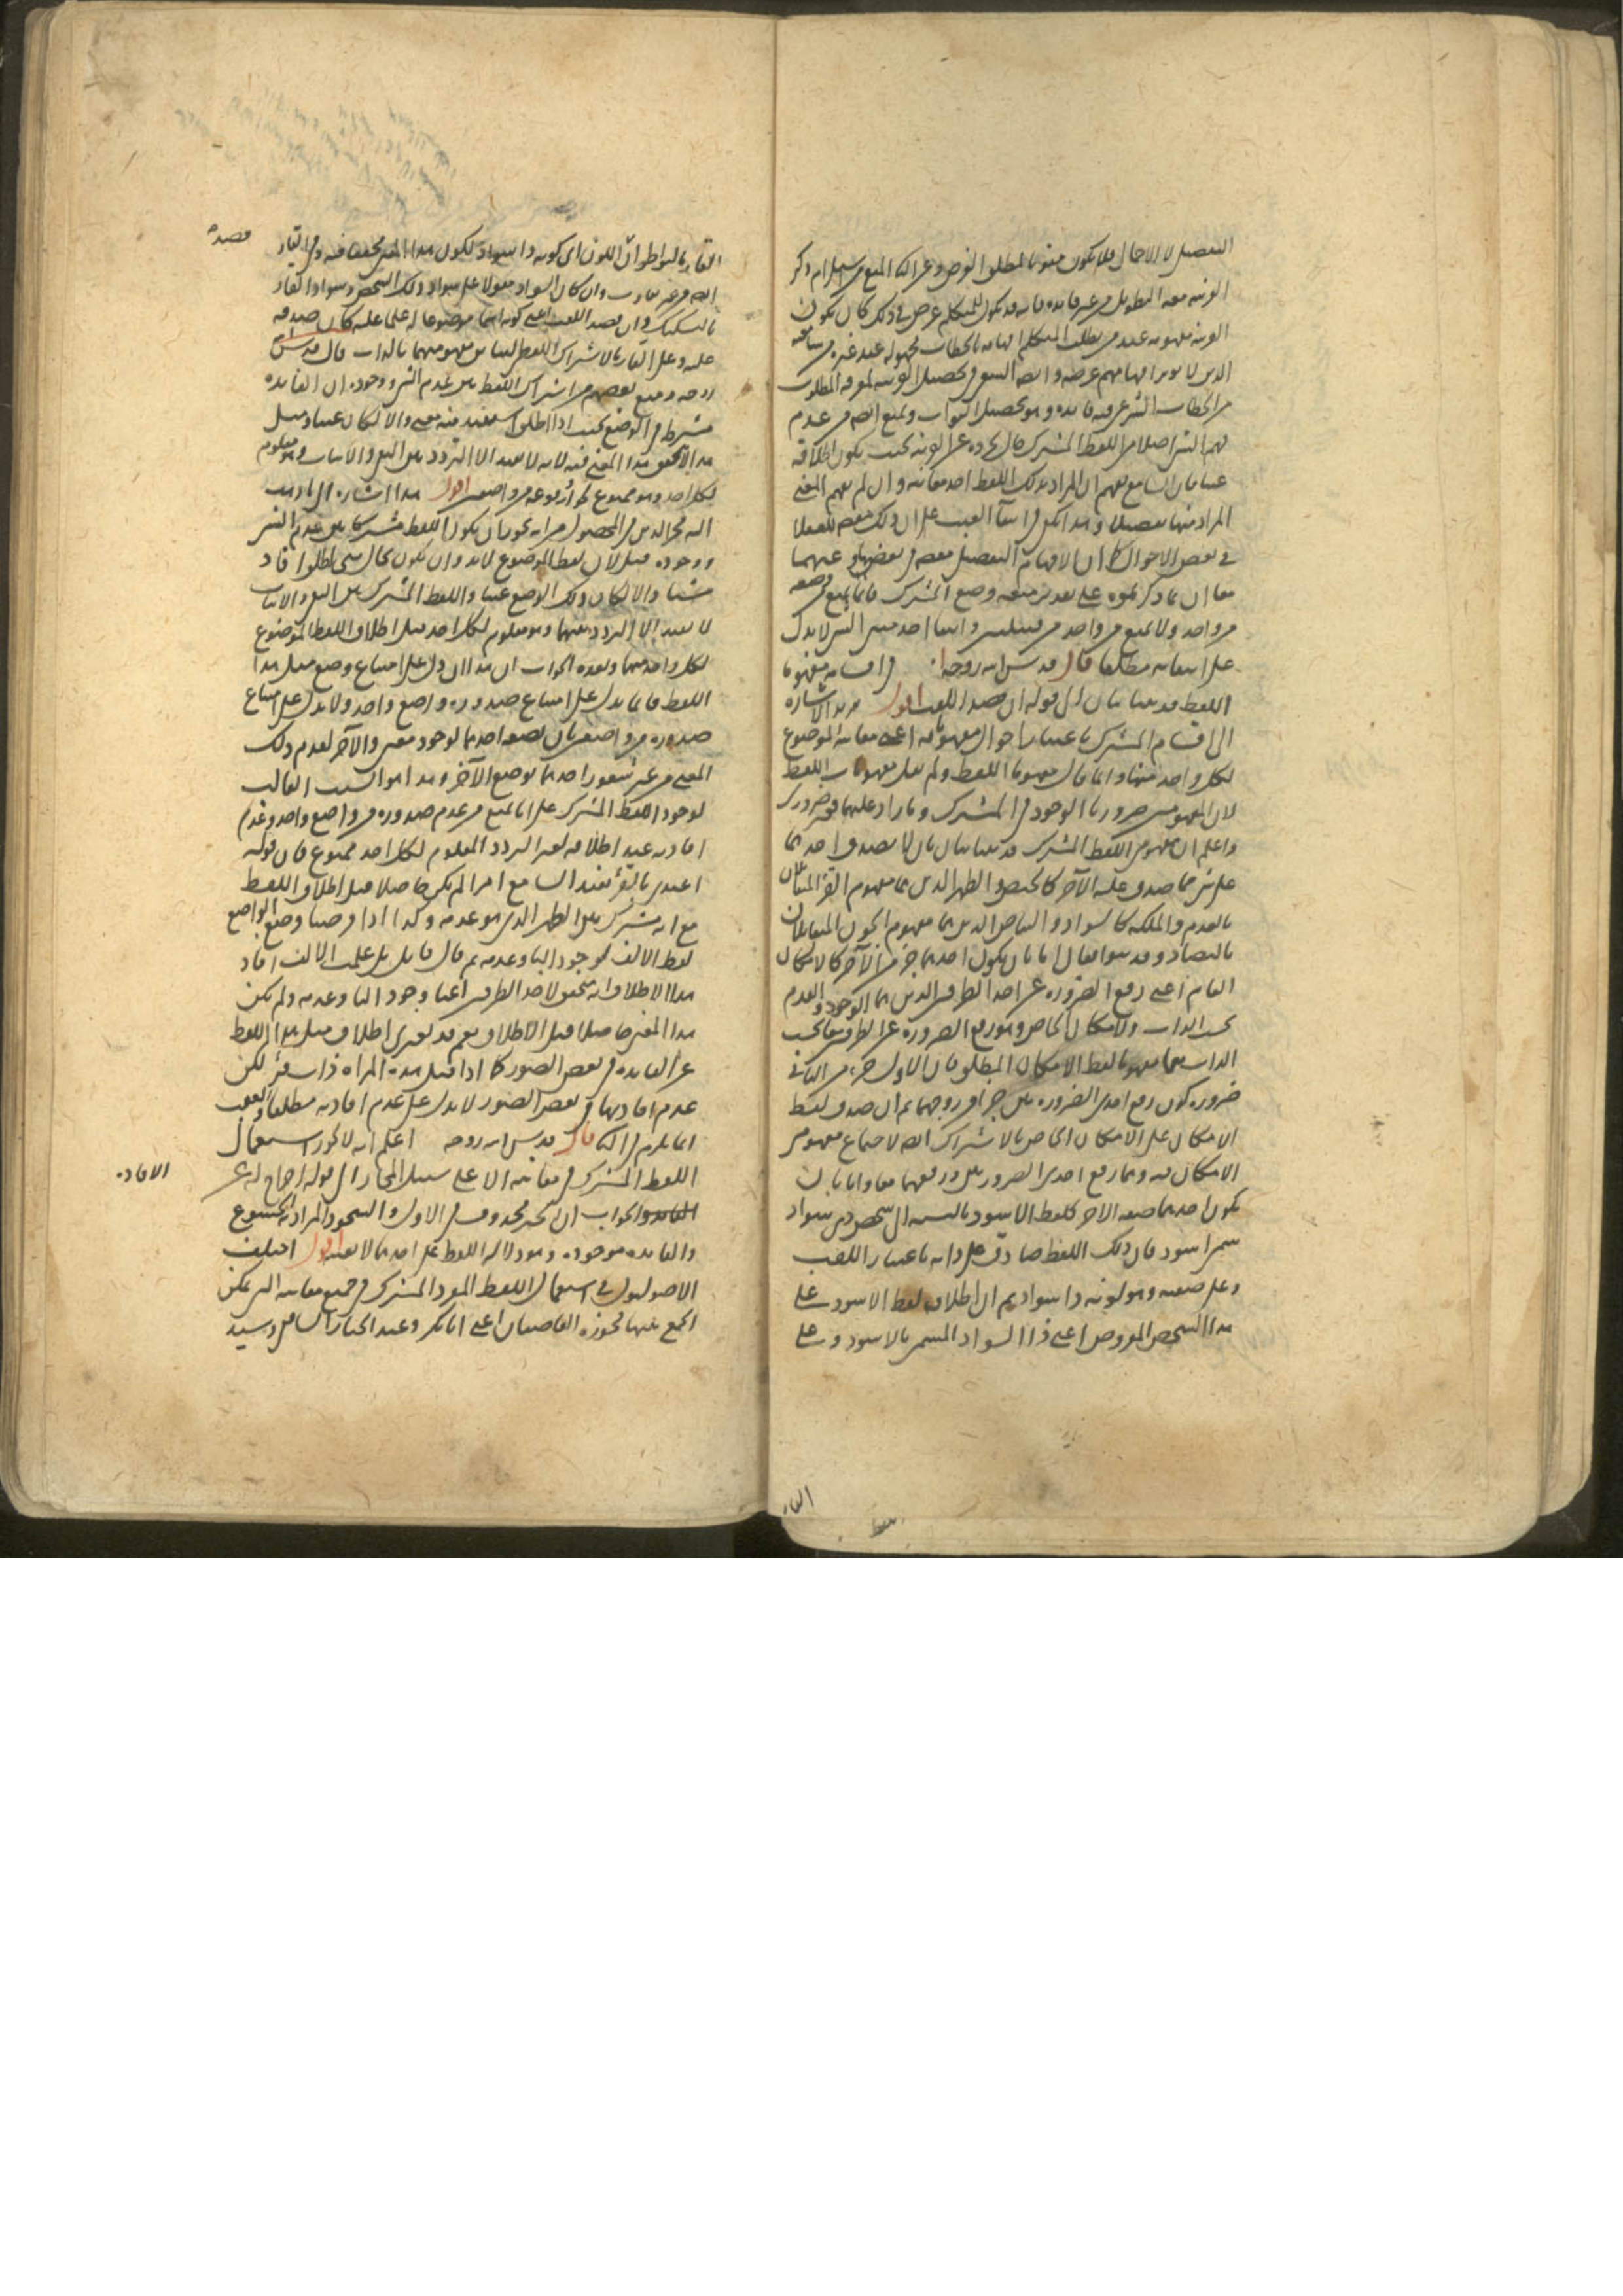 التفصيل لا الاجمال فلا يكون مفوتا لمطلق الغرض وعن الثاني المنع من استلزام ذكر
القرينة معه التطويل من غير فائدة فانه قد يكون للمتكلم غرض في ذلك كان يكون
القرينة مفهومة عند من يطلب المتكلم افهامه بالخطاب مجهولة عند غيره من سامعيه
الذين لا يريد افهامهم غرضه وايضا السعي في تحصيل القرينة لمعرفة المطلوب
من الخطاب الشرعي فيه فائدة وهو تحصيل الثواب ويمنع ايضا من عدم
فهم الشي اصلا من اللفظ المشترك حال تجرده عن القرينة بحيث يكون اطلاقه
عبثا فان السامع يفهم ان المراد بذلك اللفظ احد معانيه وان لم يفهم المعنى
المراد منها تفصيلا وهذا يكفي في انتفاء العبث على ان ذلك مقصود للعقلاء
في بعض الاحوال كما ان الافهام التفصيلي مقصود في بعضها وعنهما
معا ان ما ذكرتموه على تقدير منعه وضع المشترك فانما يمنع وضعه
من واحد ولا يمنع من واحد من قبيلتين وانتفاء احد سببي الشي لا يدل
على انتفائه مطلقا قال قدس الله روحه في اقسامه مفهوما
اللفظ قد يتباينان الى قوله ان قصد اللقب اقول يريد الاشارة
الى اقسام المشترك باعتبار احوال مفهوماته اعني معانيه الموضوع
لكل واحد منها وانما قال مفهوما اللفظ ولم يقل مفهومات اللفظ
لان المفهومين ضروريا الوجود في المشترك وما زاد عليهما فغير ضروري
واعلم ان مفهومي اللفظ المشترك قد يتباينان بان لا يصدق احدهما
على شي مما صدق عليه الآخر كالحيض والطهر الذين هما مفهوم القرء المتقابلان
بالعدم والملكة كالسواد والبياض الذين هما مفهوم الجون المتقابلان
بالتضاد وقد يتواصلان اما بان يكون احدهما جزء من الآخر كالامكان
العام اعني رفع الضرورة عن احد الطرفين الذين هما الوجود والعدم
بحسب الذات والامكان الخاص وهو رفع الضرورة عن الطرفين معا بحسب
الذات فهما مفهوما لفظ الامكان المطلق فان الاول جزء من الثاني
ضرورة كون رفع احدى الضرورتين جزء من رفعهما ثم ان صدق لفظ
الامكان على الامكان الخاص بالاشتراك ايضا لاجتماع مفهومي
الامكان فيه وهما رفع احدى الضرورتين ورفعهما معا واما بان
يكون احدهما صفة الآخر كلفظ الاسود بالنسبة الى شخص ذي سواد
سمي اسود فان ذلك اللفظ صادق على ذاته باعتبار اللقب
وعلى صفته وهو لونه ذا سواد ثم ان اطلاق لفظ الاسود على
هذا الشخص المفروض اعني ذا السواد المسمى بالاسود وعلى
القار
القار بالتواطؤ ان اللون اي كونه ذا سواد لكون هذا المعنى محققا فيه وفي القار
ايضا من غير تفاوت وان كان السواد مقولا على سواد ذلك الشخص وسواد القار
بالتشكيك وان قصد اللقب اعني كونه اسما موضوعا له علما عليه كان صدقه
عليه وعلى القار بالاشتراك اللفظي لتباين مفهوميهما بالذات قال قدس الله
روحه ومنع بعضهم من اشتراك اللفظ بين عدم الشي ووجوده ان الفائدة
مشترط في الوضع بحيث اذا اطلق استفيد منه معنى والا لكان عبثا ومثل
هذا لا يتحقق هذا المعنى فيه لانه لا يفيد الا التردد بين النفي والاثبات وهو معلوم
لكل احد وهو ممنوع لجواز وقوعه من واضعين اقول هذا اشارة الى ما ذهب
اليه فخر الدين في المحصول من انه لا يجوز ان يكون اللفظ مشتركا بين عدم الشي
ووجوده قيل لان لفظ الموضوع لا بد وان يكون بحال متى اطلق افاد
شيئا والا لكان ذلك الوضع عبثا واللفظ المشترك بين النفي والاثبات
لا يفيد الا التردد بينهما وهو معلوم لكل احد قبل اطلاق اللفظ الموضوع
لكل واحد منهما وبعده الجواب ان هذا ان دل على امتناع وضع مثل هذا
اللفظ فانما يدل على امتناع صدوره من واضع واحد ولا يدل على امتناع
صدوره من واضعين بان يضعه احدهما لوجود معنى والآخر لعدم ذلك
المعنى من غير شعور احدهما بوضع الآخر وهذا هو السبب الغالب
لوجود اللفظ المشترك على انا نمنع من عدم صدوره من واضع واحد وعدم
افادته عند اطلاقه لغير التردد المعلوم لكل احد ممنوع فان قوله
اعتدي بالقرء يفيد السامع امرا لم يكن حاصلا قبل اطلاق اللفظ
مع انه مشترك بين الطهر الذي هو عدمه وكذا اذا فرضنا وضع الواضع
لفظ الالف لوجود الباء وعدمه ثم قال قائل بل علمت الالف افاد
هذا الاطلاق انه متحقق لاحد الطرفين اعني وجود الباء وعدمه ولم يكن
هذا المعنى حاصلا قبل الاطلاق نعم قد يعرى اطلاق مثل هذا اللفظ
عن الفائدة في بعض الصور كما اذا قيل هذه المراة ذات قرء لكن
عدم افادتها في بعض الصور لا يدل على عدم افادته مطلقا والعبث
انما يلزم في الثاني قال قدس الله روحه اعلم انه لا يجوز استعمال
اللفظ المشترك في معانيه الا على سبيل المجاز الى قوله احتاج له عن
الافادة
والجواب ان الخبر محذوف في الاول والسجود المراد به الخشوع
والفائدة موجودة وهو دلالة اللفظ على احدهما لا بعينه اقول اختلف
الاصوليون في استعمال اللفظ المفرد المشترك في جميع معانيه التي يمكن
الجمع بينها فجوزه القاضيان اعني ابا بكر وعبد الجبار والشافعي وسيد